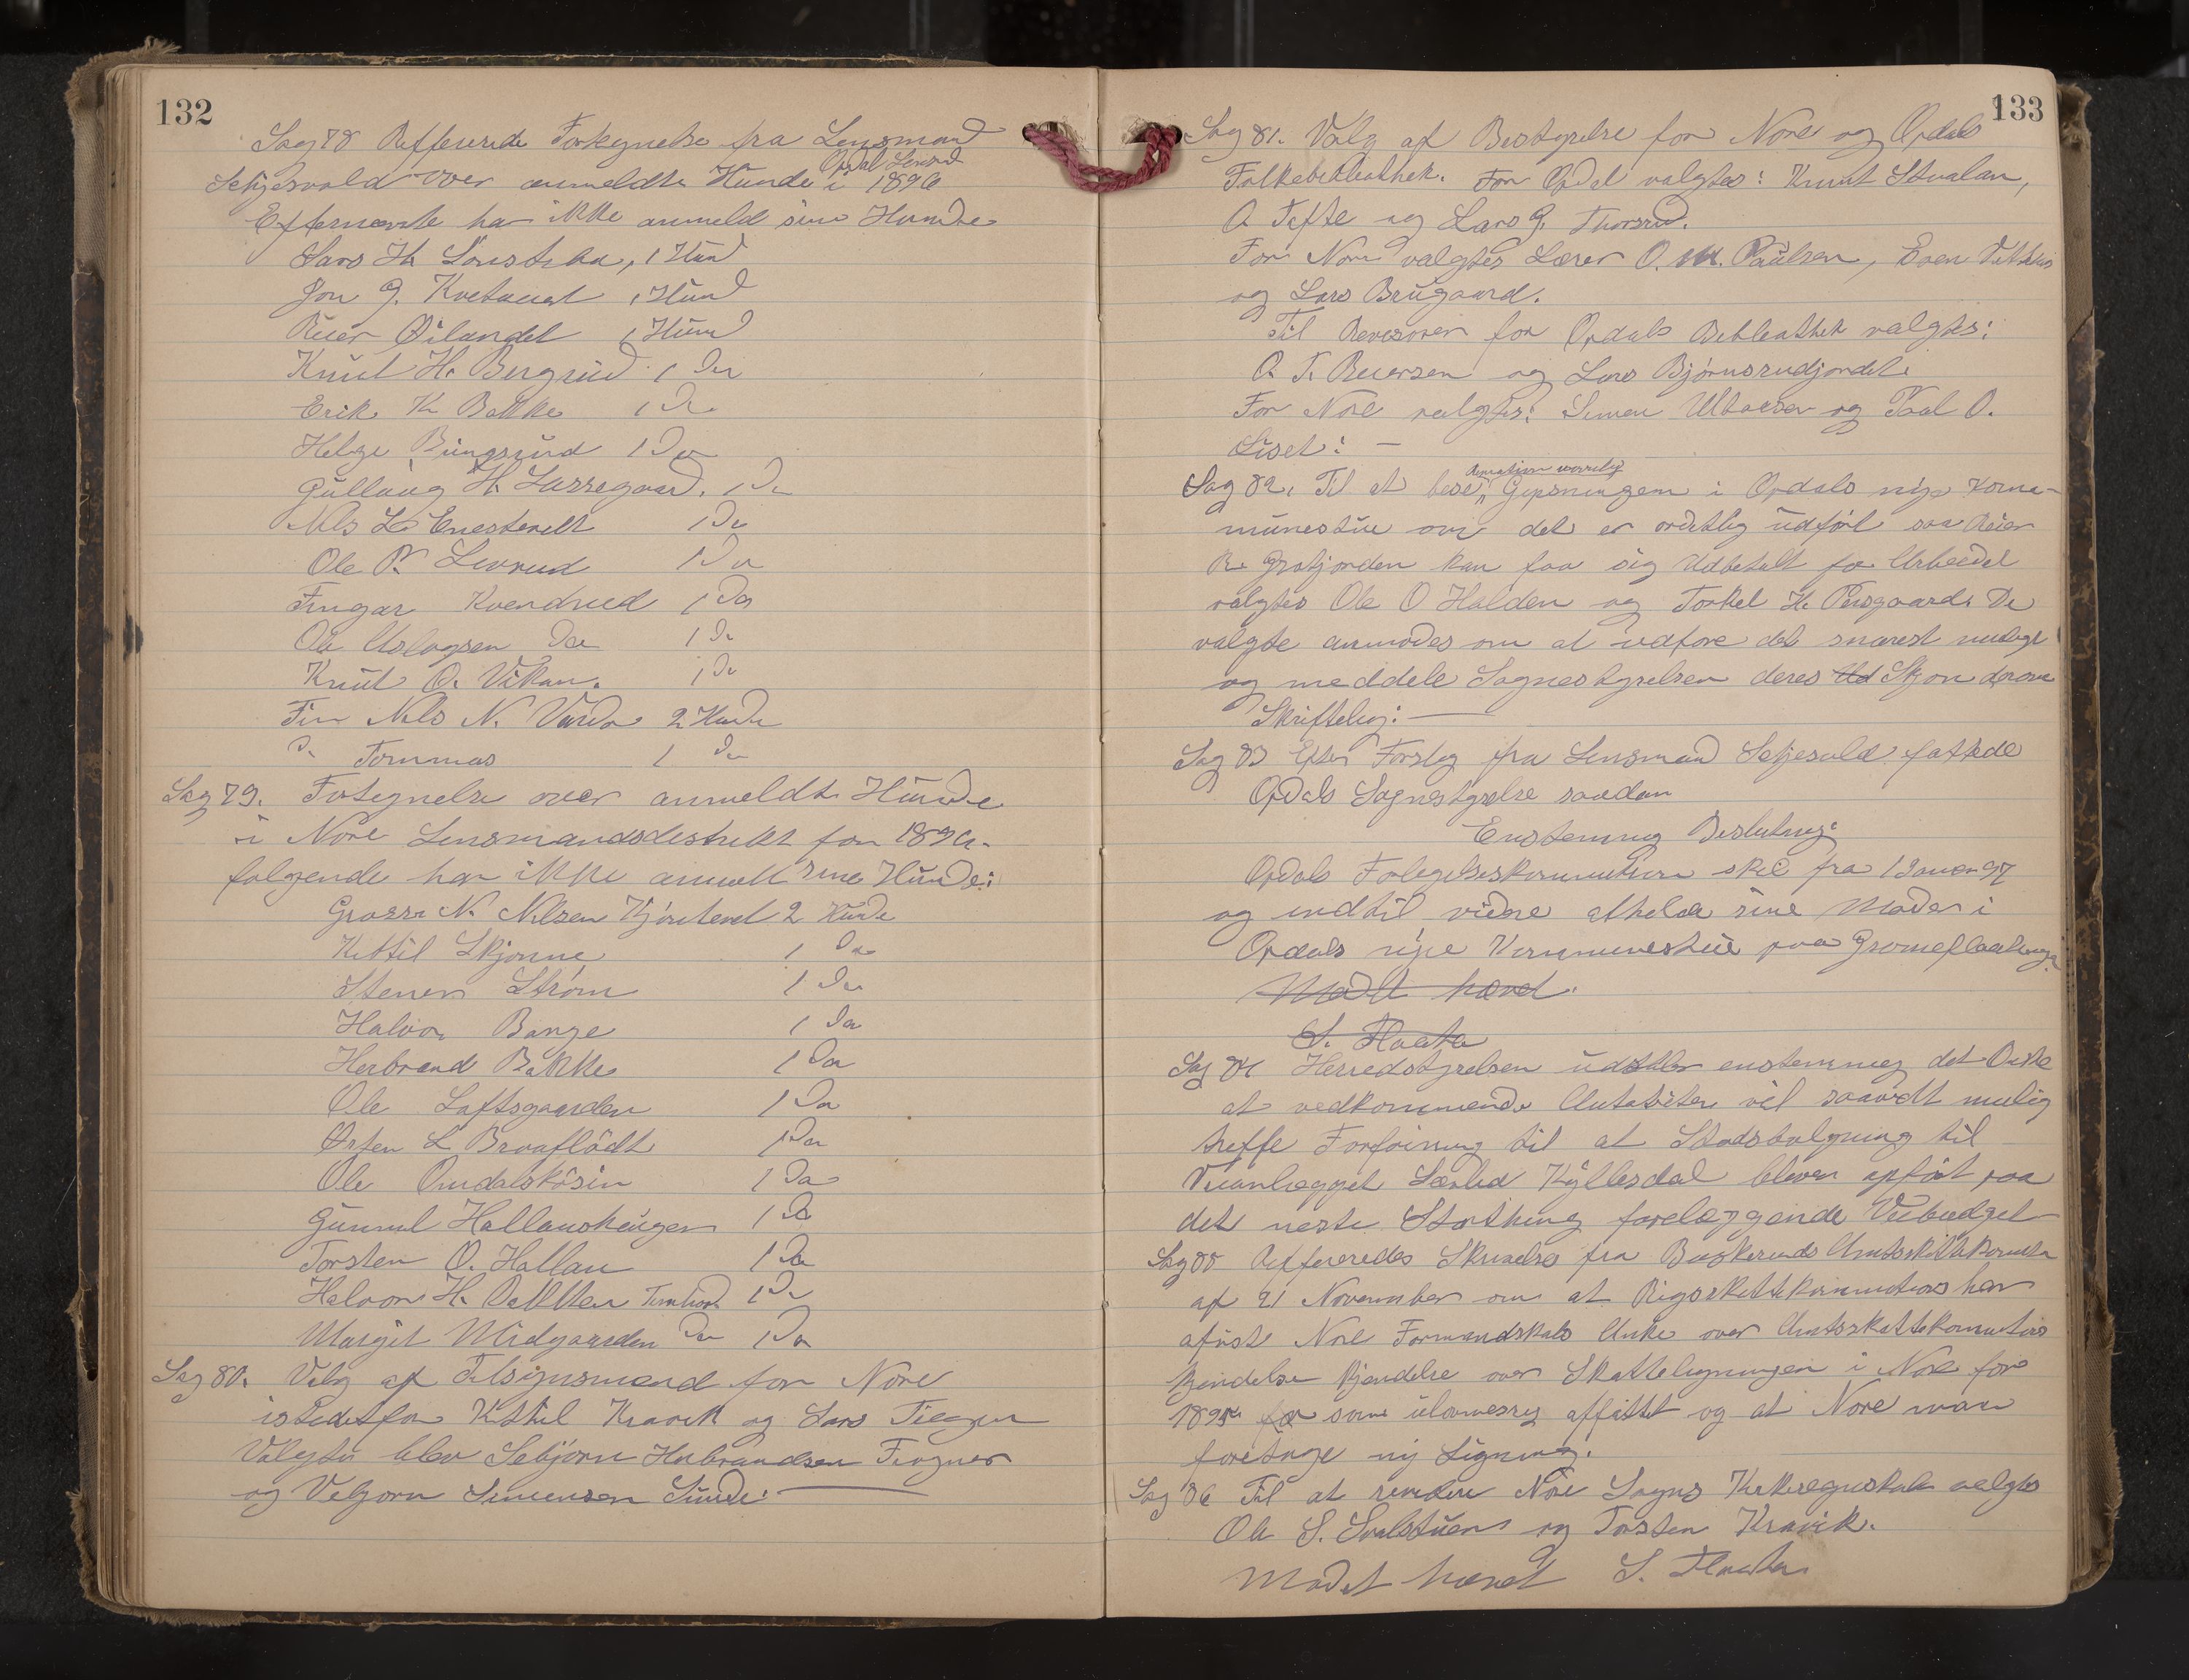 132
Sag 78 Reffererede Fortegnelse fra Lensmand
Opdal Lensmd
Schjesvold over anmeldte Hunde i 1896
Efternevnte har ikke anmeld sine Hunde
Lars H. 1 Hund
Jon G. 1 Hund
Reier Øilandet 1 Hund
Knut H. Bergrud 1 Do
Erik K Bakke 1 Do
Helge Bungsrud 1 Do
Gullaug H. Larsegaard. 1 Do
Nils L. Enestvedt 1 Do
Ole P. Levrud 1 Do
Fingar Kvendrud 1 Do
Ole Aslagsen Do 1 Do
Knut O. Vikan. 1 Do
Fin Nils N. 2 Hunde
Do Tommas 1 Do
Sag 79. Fortegnelse over anmeldte Hunde
i Nore Lensmandsdistrikt for 1896.
følgende har ikke anmelt sine Hunde:
N. Nilsen 2 Hunde
Kittil Skjønne 1 Do
Stener Strøm 1 Do
Halvor Bange 1 Do
Herbrand Bakke 1 Do
Ole Loftsgaarden 1 Do
Østen L Braaflødt 1 Do
Ole 1 Do
Gunnul Hallanshaugen 1 Do
Torsten O. Hallan 1 Do
Halvor H. 1 Do
Margit Midgaarden Do 1 Do
Sag 80. Valg af Tilsynsmænd for Nore
istedetfor Kittil Kravik og Lars
Valgte blev Sebjørn Herbrandsen Fragner
og Vebjørn Simensen Sunde:
133
Sag 81. Valg af Bestyrelse for Nore og Opdals
Folkebibleothek. For Opdal valgtes: Knut Stualan,
O Tufte og Lars G. Thorsrud.
For Nore valgtes Lærer O. M. Paulsen, Even
og Lars Brugaard.
Til Revesorer for Opdals Bibleothek valgtes:
O. T. Reiersen og Lars Bjørnsrudjordet.
For Nore valgtes: Simen Utaasen og Paal O.
Liset: —
Sag 82. Til at bese Gipsningen i Opdals nye Komu-
munestue om det er ordetlig udført saa Reier
R. Grøtjorden kan faa sig Udbetalt for Arbeidet
valgtes Ole O Halden og Torkel H. Persgaard. De
valgte anmodes om at udføre det snarest muligt
og meddele Sognestyrelsen deres Ud Skjøn derom
Skriftelig: —
Sag 83 Efter Forslag fra Lensmand Schjesvold fattede
Opdals Sognestyrelse saadan
Enstemmig Beslutning:
Opdals Forlegelseskommission skal fra 1 Januar 97
og indtil videre afholde sine Møder i
Opdals nye Kommunestue paa
Mødet hævet.
S. Flaata
Sag 84 Herredstyrelsen udtaler enstemmig det Ønske
at vedkommende Autoriteter vil saavidt mulig
treffe Forføining til at Stadsbolgning til
Veianlægget Kyllesdal bliver opført paa
det neste Storthing foreleggende Veibudget
Sag 85 Reffereredes Skrivelse fra Buskeruds Amtsskattekomite
af 21 November om at Rigsskattekommisionen har
afvist Nore Formandskabs Anke over Amtsskattekomiteens
Kjendelse Kjendelse over Skatteligningen i Nore for
1895 for som ulovmessig affattet og at Nore maa
foretage ny Ligning.
Sag 86 Til at revedere Nore Sogns Kirkeregnskab valgtes
Ole S. Svalstuen og Torsten Kravik.
Mødet hævet S. Flaata